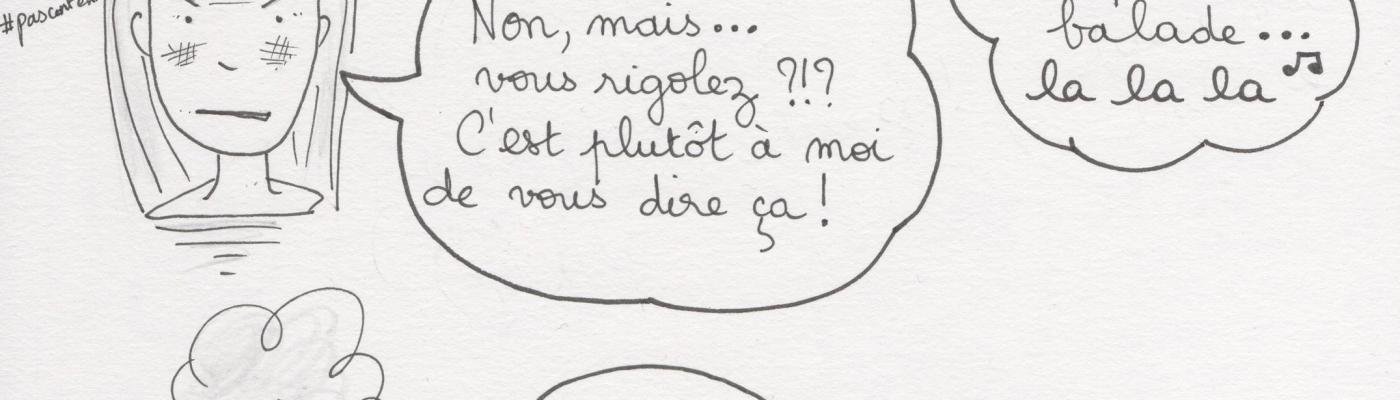 Non, mais...
vous rigolez ?!?
C'est plutôt à moi
de vous dire ça !
balade...
la la la ♫